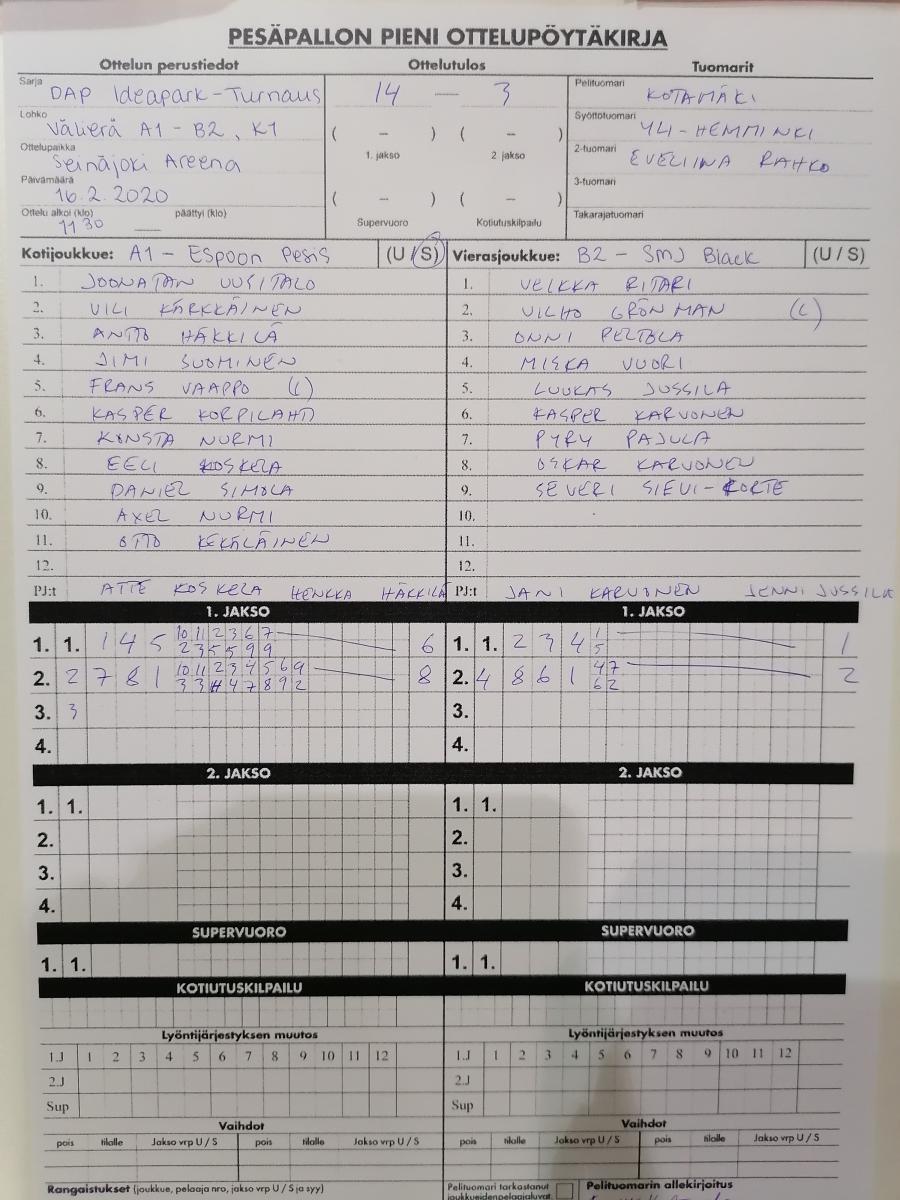 PESÄPALLON PIENI OTTELUPÖYTÄKIRJA
Ottelun perustiedot Ottelutulos Tuomarit
Sarja DAP Ideapark-Turnaus
14 — 3
Pelituomari KOTAMÄKI
Lohko Välierä A1 - B2, K1
( – ) ( – )
1. jakso 2. jakso
Syöttötuomari YLI-HEMMINKI
Ottelupaikka Seinäjoki Areena
2-tuomari EVELIINA RAHKO
Päivämäärä 16.2.2020
( – ) ( – )
Supervuoro Kotiutuskilpailu
3-tuomari
Ottelu alkoi (klo) 11 30 päättyi (klo)
Takarajatuomari
Kotijoukkue: A1 - Espoon Pesis (U / S) Vierasjoukkue: B2 - SMJ Black (U / S)
1. JOONATAN UUSITALO 1. VEIKKA RITARI
2. VILI KÄRKKÄINEN 2. VILHO GRÖNMAN (C)
3. ANTTO HÄKKILÄ 3. ONNI PELTOLA
4. JIMI SUOMINEN 4. MISKA VUORI
5. FRANS VAAPPO (C) 5. LUUKAS JUSSILA
6. KASPER KORPILAHTI 6. KASPER KARVONEN
7. KONSTA NURMI 7. PYRY PAJULA
8. EELI KOSKELA 8. OSKAR KARVONEN
9. DANIEL SIMOLA 9. SEVERI SIEVI-KORTE
10. AXEL NURMI 10.
11. OTTO KEKÄLÄINEN 11.
12. 12.
PJ:t ATTE KOSKELA HENKKA HÄKKILÄ PJ:t JANI KARVONEN JENNI JUSSILA
1. JAKSO 1. JAKSO
1. 1. 1 4 5 10 11 2 3 6 7 6 1. 1. 2 3 4 1 1
2 3 5 5 9 9 5
2. 2 7 8 1 10 11 2 3 4 5 6 9 8 2. 4 8 6 1 4 7 2
3 3 4 7 8 9 2 6 2
3. 3 3.
4. 4.
2. JAKSO 2. JAKSO
1. 1. 1. 1.
2. 2.
3. 3.
4. 4.
SUPERVUORO SUPERVUORO
1. 1. 1. 1.
KOTIUTUSKILPAILU KOTIUTUSKILPAILU
Lyöntijärjestyksen muutos Lyöntijärjestyksen muutos
1.J 1 2 3 4 5 6 7 8 9 10 11 12 1.J 1 2 3 4 5 6 7 8 9 10 11 12
2.J 2.J
Sup Sup
Vaihdot Vaihdot
pois tilalle Jakso vrp U / S pois tilalle Jakso vrp U / S pois tilalle Jakso vrp U / S pois tilalle Jakso vrp U / S
Rangaistukset (joukkue, pelaaja nro, jakso vrp U / S ja syy) Pelituomari tarkastanut Pelituomarin allekirjoitus
joukkueidenpelaajaluvat.